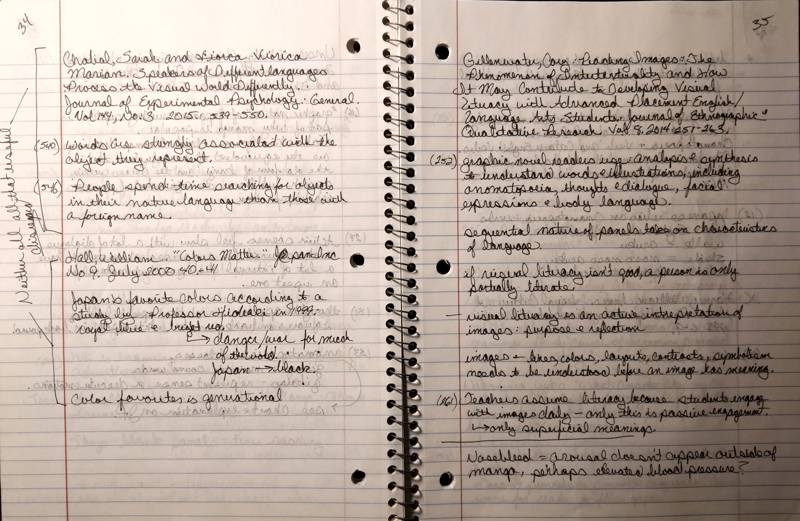 34
Neither all all that useful
diseases
Chabal, Sarah and Viorica Viorica
Marian. Speakers of Different languages
Process the Visual World Differently.
Journal of Experimental Psychology: General.
Vol 144, No. 3 2015. 539-550.
(540) words are strongly associated with the
object they represent.
(546) People spend time searching for objects
in their native language than those with
a foreign name.
Hall, William. "Colors Matter" Japan Inc
No 9. July 2000 40-41
Japan's favorite colors according to a
study by Professor Hideaki in
royal blue & bright red
↳ danger/war for much
of the world.
Japan → black.
Color favorites is generational
35
Gillenwater, Cary. Reading Images: The
Phenomenon of Intertextuality and How
It May Contribute to Developing Visual
Literacy with Advanced Placement English/
Language Arts Students. Journal of Ethnographic &
Qualitative Research Vol 8, 2014: 251-263.
(252) graphic novel readers use analysis & synthesis
to understand words & illustrations, including
onomatopoeia, thoughts & dialogue, facial
expressions & body language.
sequential nature of panels takes on characteristics
of language
if visual literacy isn't good, a person is only
partially literate.
— visual literacy is an active interpretation of
images: purpose & reflection
images = lines, colors, layouts, contrasts, symbolism
needs to be understood before an image has meaning.
Teachers assume literacy because students engage
with images daily - only this is passive engagement.
↳ only superficial meanings
Nosebleed = arousal doesn't appear outside of
manga, perhaps elevated blood pressure?